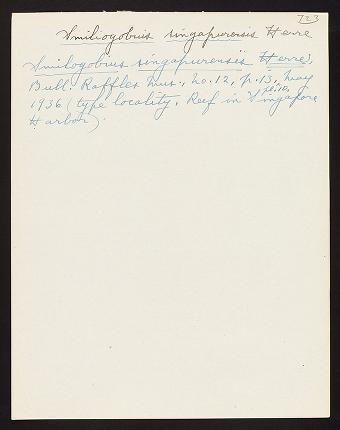 723
Smiliogobius singapurensis Herre
Smilogobius singapurensis Herre,
Bull. Raffles Mus., no. 12, p. 13, pl. 10, May
1936 (type locality, Reef in Singapore
Harbor).